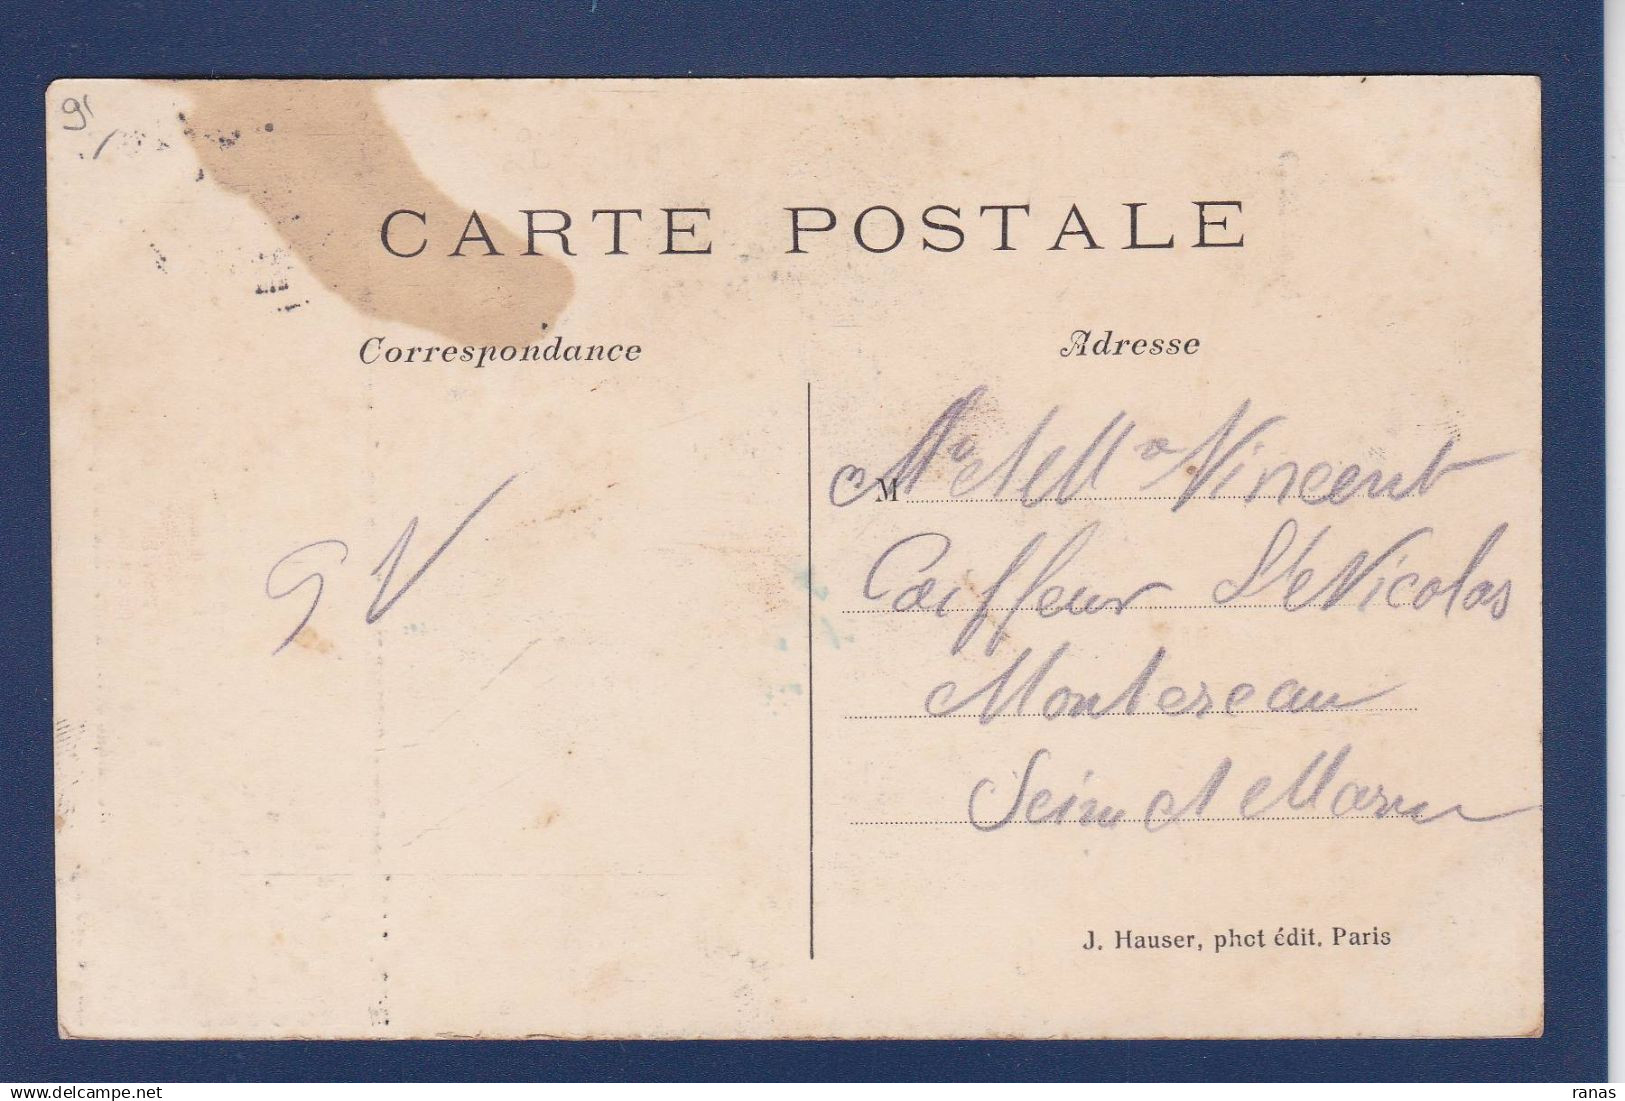 91
CARTE POSTALE
Correspondance
Adresse
M Mr et Mme Vincent
Coiffeur St Nicolas
Montereau
Seine et Marne
GV
J. Hauser, phot édit. Paris
ranas